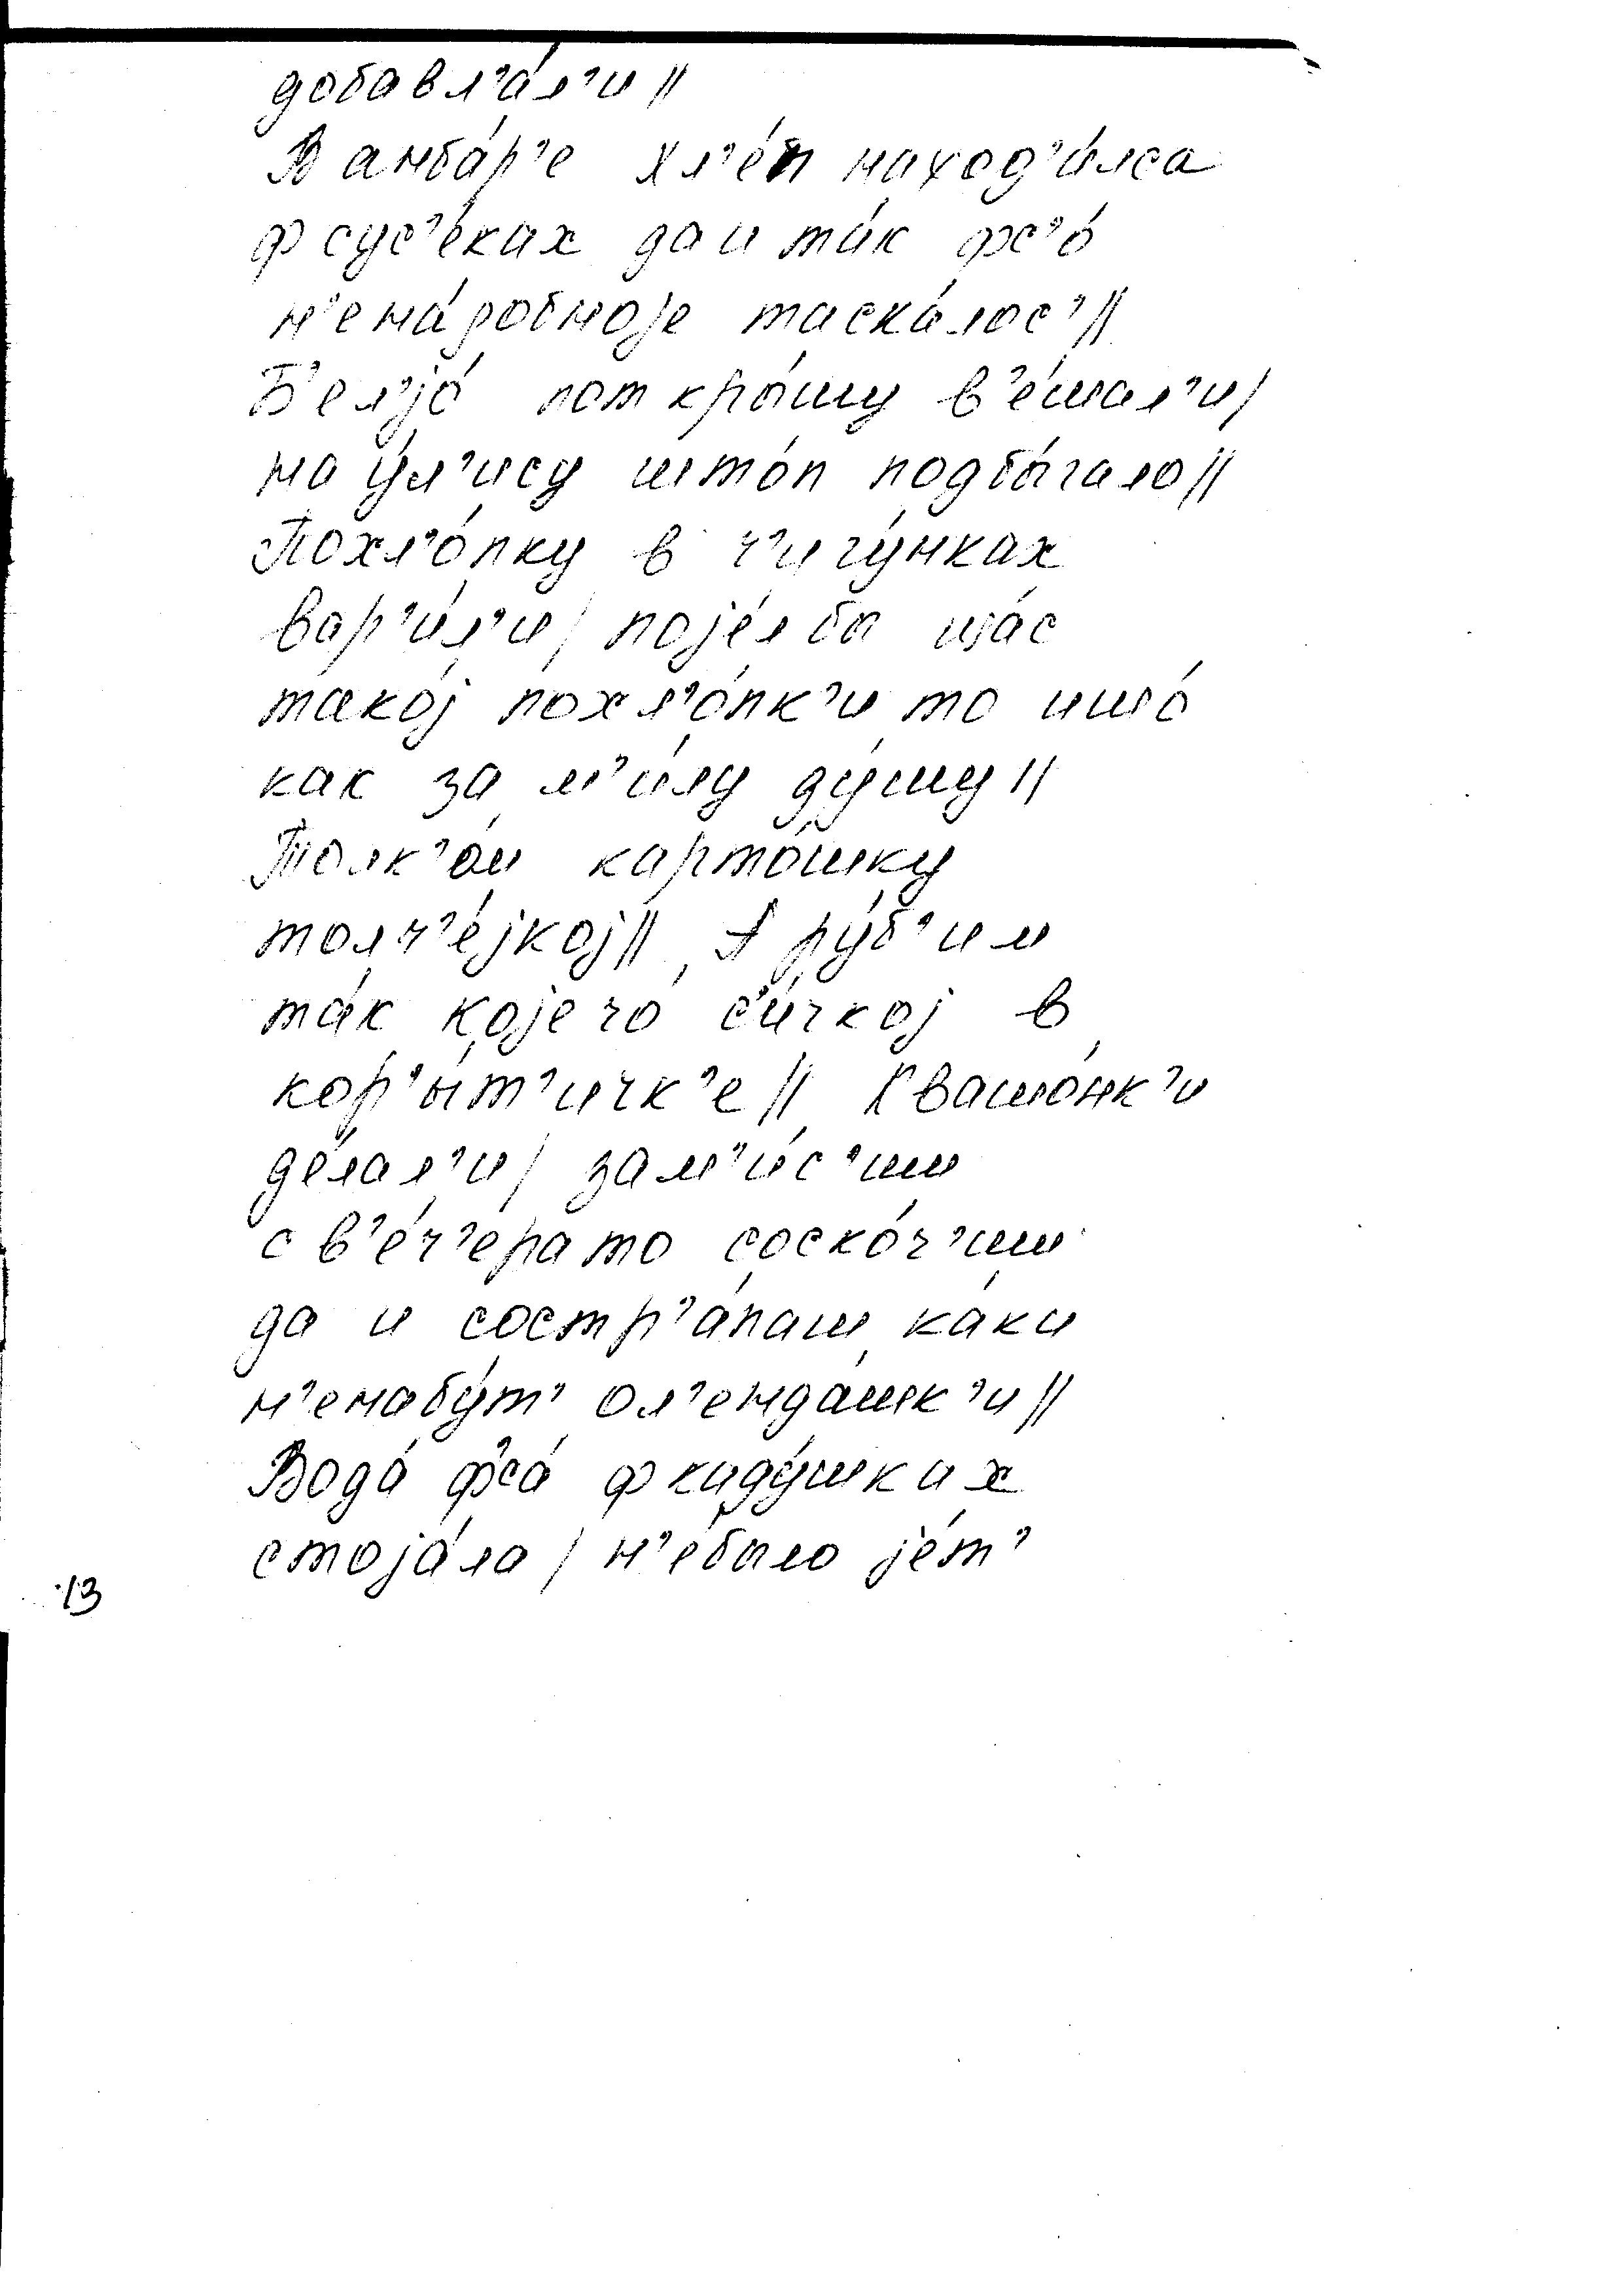 добавл'а́л'и //
В анба́р'е хл'е́п наход'и́лса
ф сус'е́ках да и та́к фс'о́
н'ена́добноjе таска́лос' //
Б'ел'jо́ пот кры́шу в'е́шал'и /
на у́л'ису што́п подбы́гало //
Похл'о́пку в ч'угу́нках
вар'и́л'и / поjе́л бы ща́с
тако́j похл'о́пк'и то ишо́
как за м'и́лу ду́шу //
Толк'о́ш карто́шку
толч'е́jкоj // А ру́б'им
та́к коjе чо́ с'е́чкоj в
кор'ы́т'ичк'е // Квашо́нк'и
де́лал'и / зам'и́с'иш
с в'е́ч'ера то соско́ч'иш
да и состр'а́паш ка́ки
н'енабу́т' ол'енда́шк'и //
Вода́ ф'с'а́ ф каду́шках
стоjа́ла / н'е́было jе́т'
13